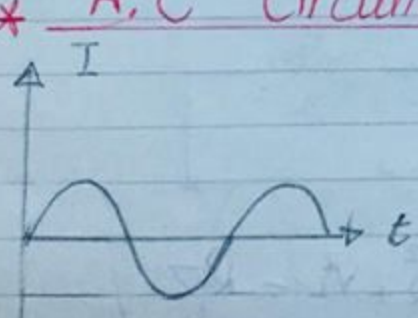 * A.C Circui
I
t